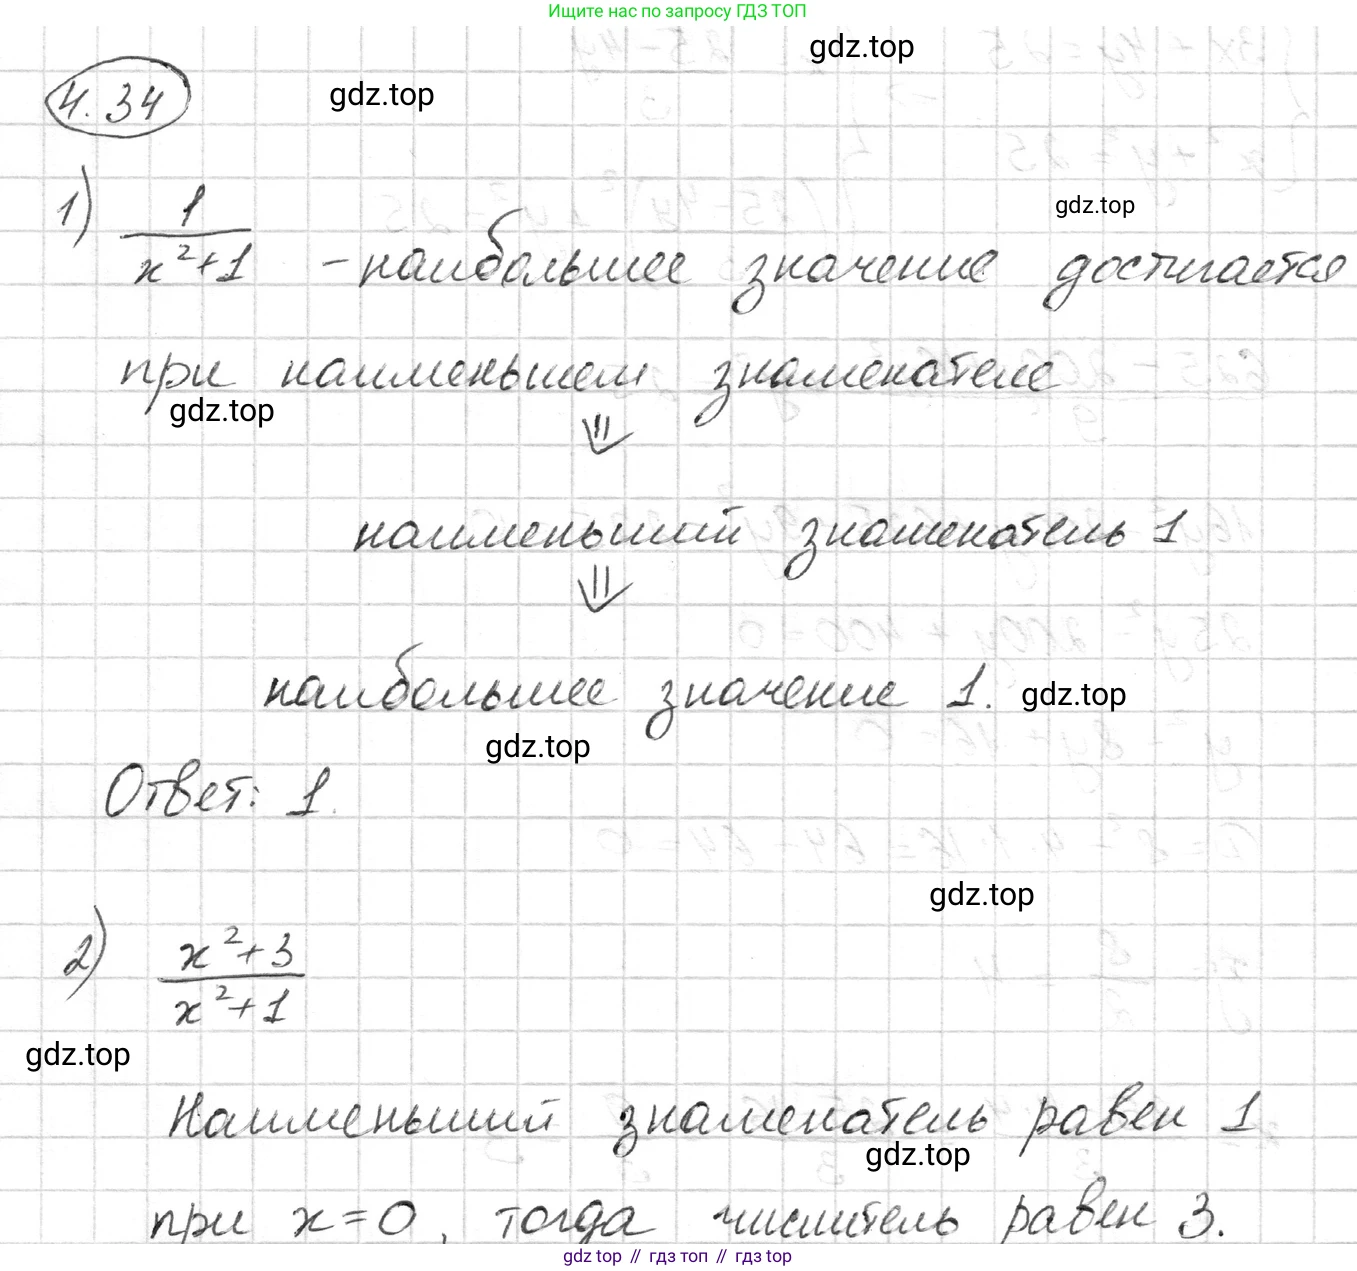 Ищите нас по запросу ГДЗ ТОП
gdz.top
4.34
gdz.top
1) 1/(x²+1) - наибольшее значение достигается
gdz.top
при наименьшем знаменателе
gdz.top
⇓
наименьший знаменатель 1
⇓
наибольшее значение 1.
gdz.top
gdz.top
Ответ: 1.
gdz.top
2) (x²+3)/(x²+1)
gdz.top
Наименьший знаменатель равен 1
gdz.top
при x=0, тогда числитель равен 3.
gdz top // гдз топ // gdz top